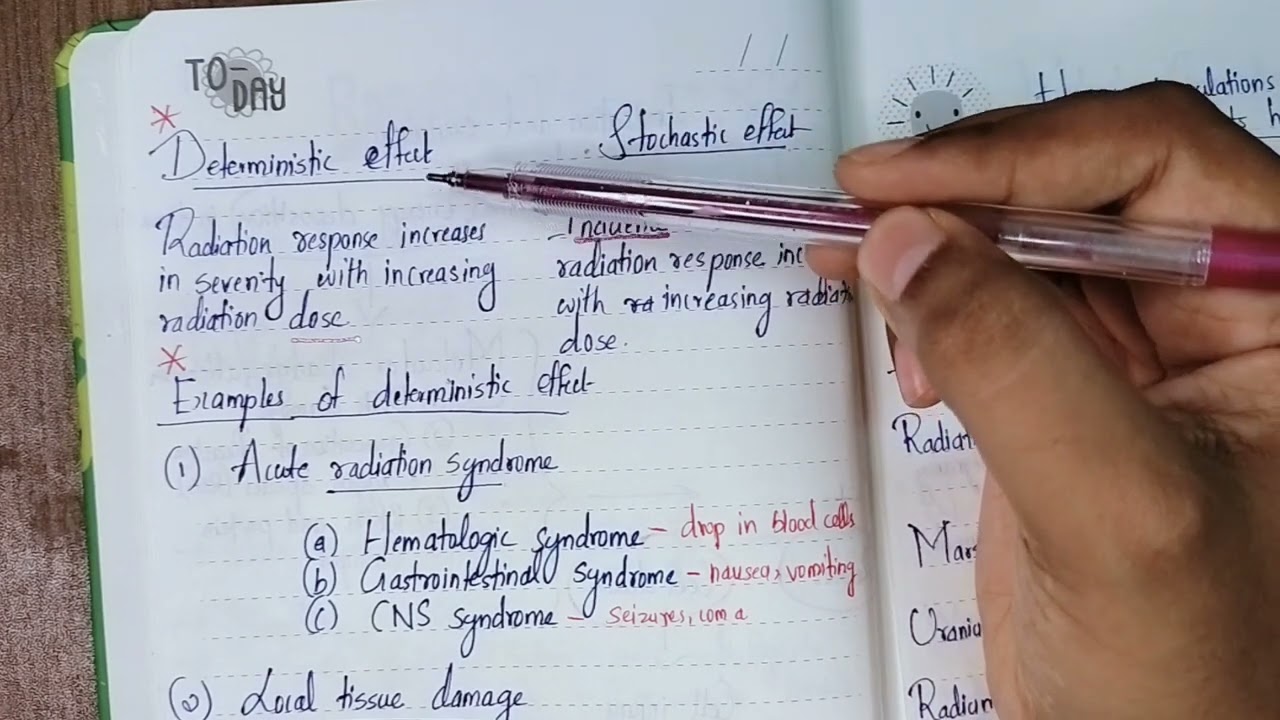 TO-DAY
/ /
* Deterministic effect
Radiation response increases
in severity with increasing
radiation dose
Stochastic effect
radiation response
with increasing
dose.
* Examples of deterministic effect
(1) Acute radiation syndrome
(a) Hematologic syndrome - drop in blood cells
(b) Gastrointestinal syndrome - nausea, vomiting
(c) CNS syndrome - Seizures, coma
(2) Local tissue damage